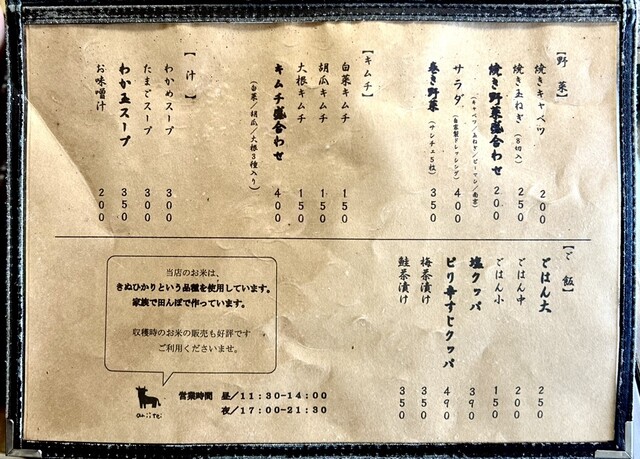 【野菜】
焼きキャベツ 200
焼き玉ねぎ（8切入） 250
焼き野菜盛合わせ 200
（キャベツ/玉ねぎ/ピーマン/南京）
サラダ（自家製ドレッシング） 400
巻き野菜（サンチュ5枚） 350
【キムチ】
白菜キムチ 150
胡瓜キムチ 150
大根キムチ 150
キムチ盛合わせ 400
（白菜/胡瓜/大根3種入り）
【汁】
わかめスープ 300
たまごスープ 300
わか玉スープ 350
お味噌汁 200
【ご飯】
ごはん大 250
ごはん中 200
ごはん小 150
塩クッパ 390
ピリ辛すじクッパ 490
梅茶漬け 350
鮭茶漬け 350
当店のお米は、
きぬひかりという品種を使用しています。
家族で田んぼで作っています。
収穫時のお米の販売も好評です
ご利用くださいませ。
営業時間 昼/11:30-14:00
夜/17:00-21:30